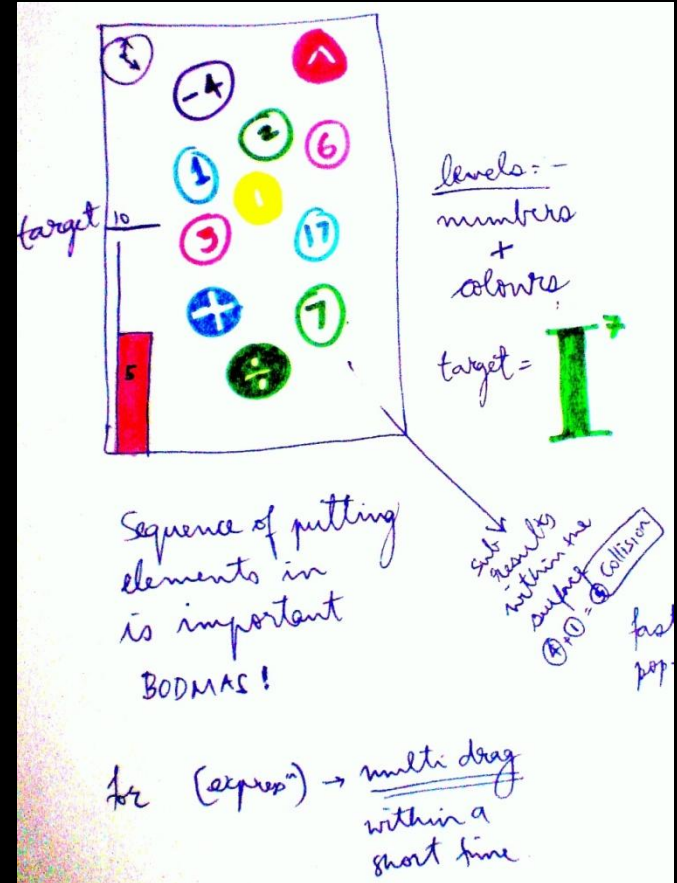 -4
^
2
6
1
target 10
3
17
+
7
÷
5
levels: -
numbers
+
colours
target = 7
Sequence of putting
elements in
is important
BODMAS!
sub
results
within the
surface
4 + 1 = 5 Collision
fast
pop-
for (expresⁿ) → multi drag
within a
short time